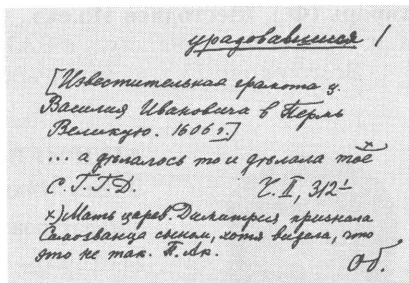 урадовавшися 1
[Известительная грамота ц.
Василия Ивановича в Пермь
Великую. 1606 г.]
... а дѣялось то и дѣлала тое х
С.Г.Г.Д. Ч. II, 312
х) Мать царев. Димитрия признала
Самозванца сыном, хотя видела, что
это не так. П. Ак.
об.